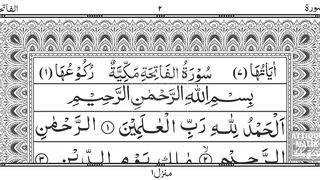 الفاتحة ٢ سورة
اٰيَاتُهَا (٧) سُوْرَةُ الْفَاتِحَةِ مَكِّيَّةٌ رُكُوْعُهَا (١)
بِسْمِ اللّٰهِ الرَّحْمٰنِ الرَّحِيْمِ
اَلْحَمْدُ لِلّٰهِ رَبِّ الْعٰلَمِيْنَ ١ الرَّحْمٰنِ
الرَّحِيْمِ ٢ مٰلِكِ يَوْمِ الدِّيْنِ ٣
منزل ١
ATTIQUE
MALIK